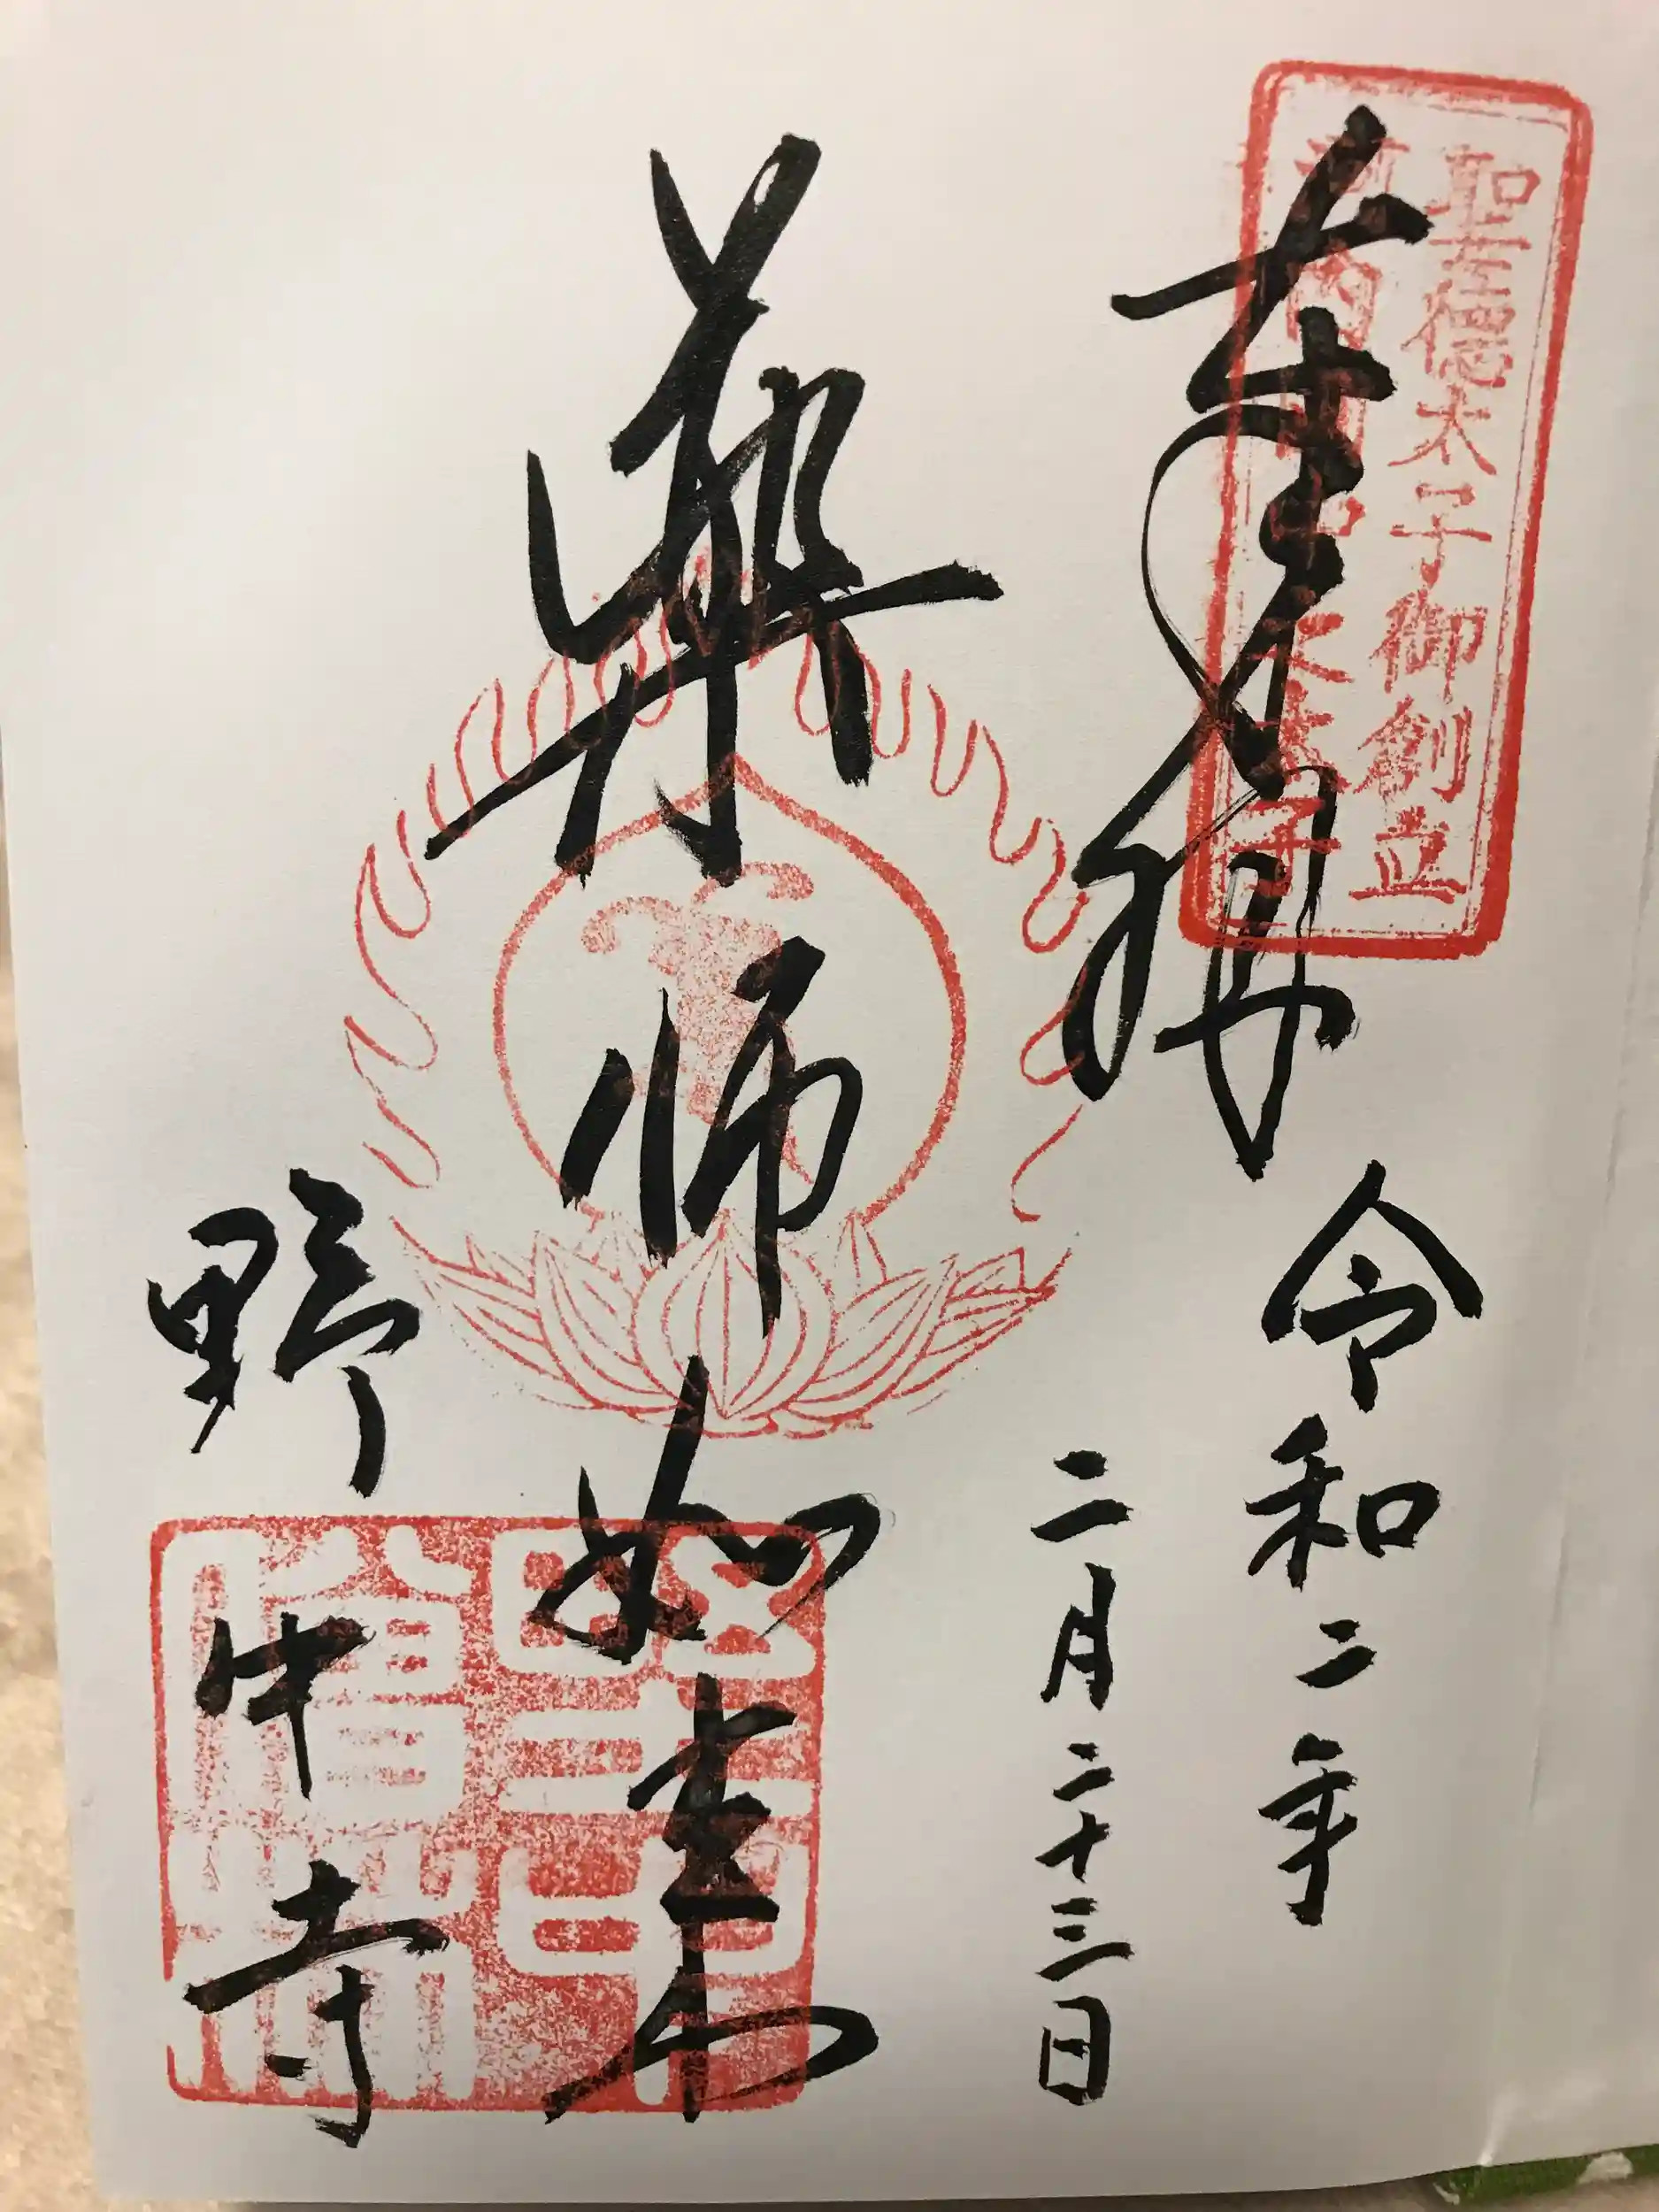 聖徳太子御創立
奉拝
令和二年
二月二十三日
薬師如来
野中寺